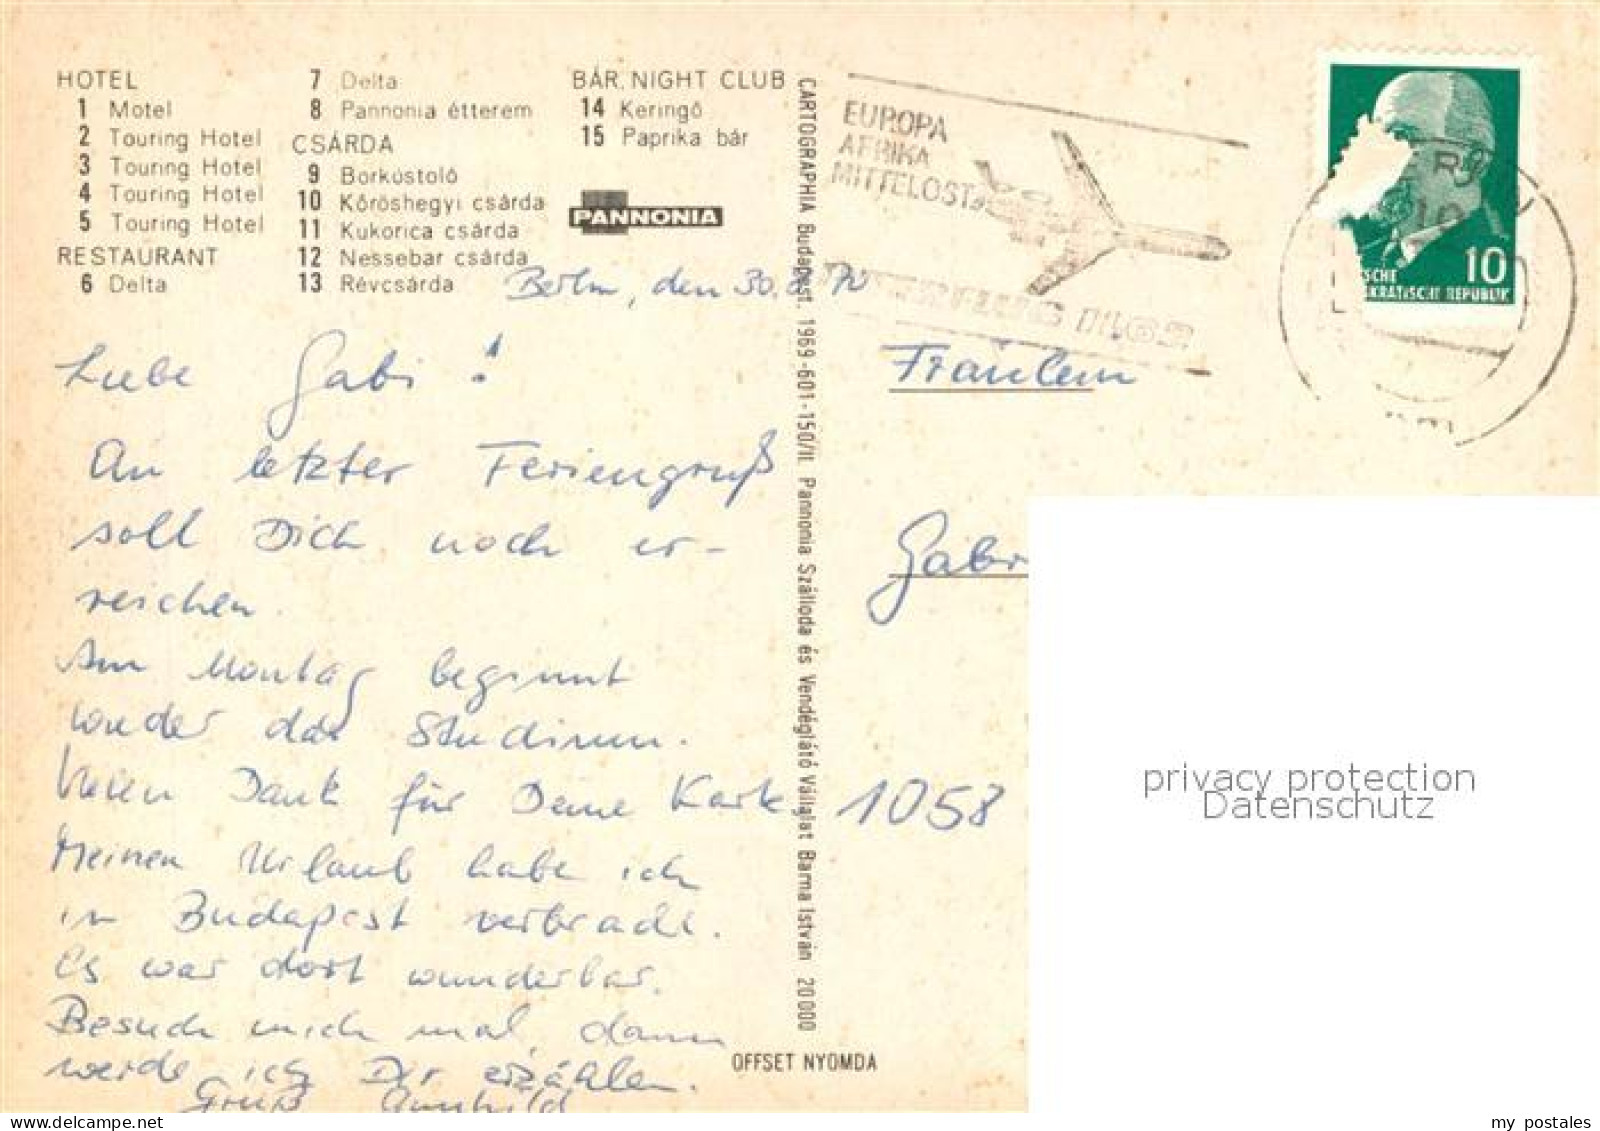 HOTEL
1 Motel
2 Touring Hotel
3 Touring Hotel
4 Touring Hotel
5 Touring Hotel
RESTAURANT
6 Delta
7 Delta
8 Pannonia étterem
CSÁRDA
9 Borkóstoló
10 Kőröshegyi csárda
11 Kukorica csárda
12 Nessebar csárda
13 Révcsárda
BÁR, NIGHT CLUB
14 Keringő
15 Paprika bár
PANNONIA
Berlin, den 30.8.70
Liebe Gabi!
An letzter Feriengruß
soll Dich noch er-
reichen.
Am Montag beginnt
wieder das Studium.
Vielen Dank für Deine Karte
Meinen Urlaub habe ich
in Budapest verbracht.
Es war dort wunderbar.
Besuch mich mal, dann
werde ich Dir erzählen.
Gruß Gunhild
CARTOGRAPHIA Budapest. 1969-601-150/II. Pannonia Szálloda és Vendéglátó Vállalat Barna István 20 000
OFFSET NYOMDA
EUROPA
AFRIKA
MITTELOST
INTERFLUG IL 62
10
SCHE
KRATISCHE REPUBLIK
Fräulein
Gabr
1058
privacy protection
Datenschutz
my postales